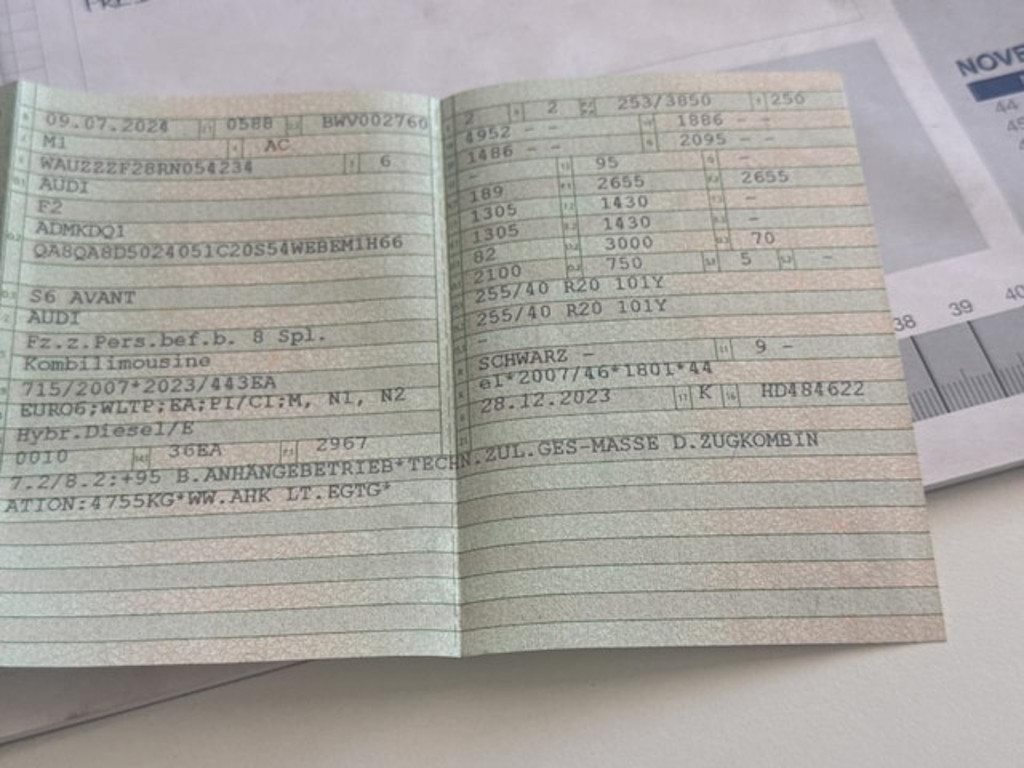 09.07.2024 0588 BWV002760
M1 AC
WAUZZZF28RN054234 6
AUDI
F2
ADMKDQ1
QA8QA8D5024051C20S54WEBEM1H66
S6 AVANT
AUDI
Fz.z.Pers.bef.b. 8 Spl.
Kombilimousine
715/2007*2023/443EA
EURO6;WLTP;EA;PI/CI;M, N1, N2
Hybr.Diesel/E
0010 36EA 2967
7.2/8.2:+95 B.ANHÄNGEBETRIEB*TECHN.ZUL.GES-MASSE D.ZUGKOMBIN
ATION:4755KG*WW.AHK LT.EGTG*
2 2 253/3850 250
4952 - - 1886 - -
1486 - - 2095 - -
- 95 -
189 2655 2655
1305 1430 -
1305 1430 -
82 3000 70
2100 750 5 -
255/40 R20 101Y
255/40 R20 101Y
-
SCHWARZ - 9 -
e1*2007/46*1801*44
28.12.2023 K HD484622
NOVE
44
45
38 39 40